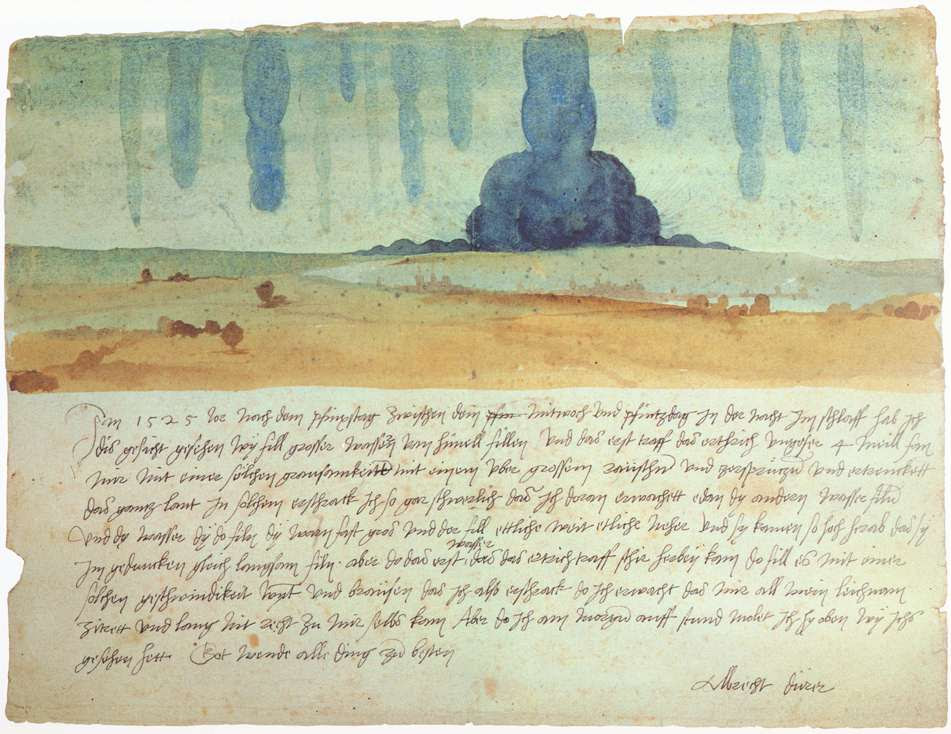 Im 1525 Jor nach dem pfinxstag zwischen dem mitwoch und pfintzdag in der nacht im schlaff hab ich
dis gesicht gesehen wy fill grosser wassern vom himell fillen Und das erst traff das erthrich ungefer 4 meill fan
mir mit einer sölchen grausamkeitt mit einem uber grossem raüschn und zersprützn und ertrenckett
das gantz lant In sölchem erschrack ich so gar schwerlich das ich doran erwachett edan dy andern wasser filn
Und dy wasser dy do filn dy warn fast gros und der fill ettliche weit etliche neher und sy kamen so hoch herab das sy
im gedancken gleich langsam filn. aber do das erst wasser das das ertrich traff schir herbey kam do fill es mit einer
sölchen geschwindikeit wynt und braüsen das ich also erschrack do ich erwacht das mir all mein leichnam
zitrett und lang nit recht zu mir selbs kam Aber do ich am morgn auff stund molet ich hy oben wy ichs
gesehen hett. Got wende alle ding zu besten
Albrecht dürer